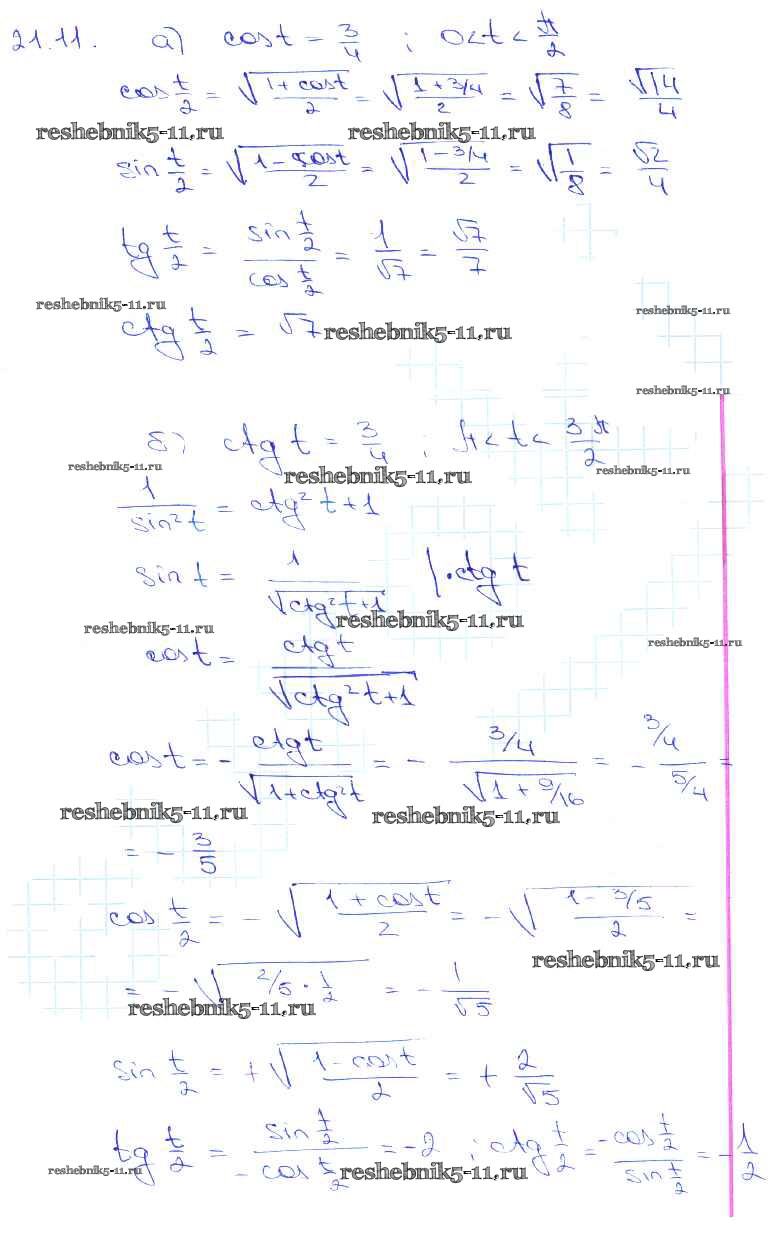 21.11. а) cos t = 3/4 ; 0 < t < π/2
cos t/2 = √((1 + cos t)/2) = √((1 + 3/4)/2) = √(7/8) = √14/4
reshebnik5-11.ru reshebnik5-11.ru
sin t/2 = √((1 - cos t)/2) = √((1 - 3/4)/2) = √(1/8) = √2/4
tg t/2 = (sin t/2)/(cos t/2) = 1/√7 = √7/7
reshebnik5-11.ru
reshebnik5-11.ru
ctg t/2 = √7 reshebnik5-11.ru
reshebnik5-11.ru
б) ctg t = 3/4 ; π < t < 3π/2
reshebnik5-11.ru reshebnik5-11.ru reshebnik5-11.ru
1/(sin² t) = ctg² t + 1
sin t = 1/√(ctg² t + 1) | · ctg t
reshebnik5-11.ru reshebnik5-11.ru
reshebnik5-11.ru
cos t = ctg t/√(ctg² t + 1)
cos t = - ctg t/√(1 + ctg² t) = - (3/4)/√(1 + 9/16) = - (3/4)/(5/4) =
reshebnik5-11.ru reshebnik5-11.ru
= - 3/5
cos t/2 = - √((1 + cos t)/2) = - √((1 - 3/5)/2) =
reshebnik5-11.ru
= - √(2/5 · 1/2) = - 1/√5
reshebnik5-11.ru
sin t/2 = + √((1 - cos t)/2) = + 2/√5
tg t/2 = (sin t/2)/(- cos t/2) = -2 ; ctg t/2 = (-cos t/2)/(sin t/2) = - 1/2
reshebnik5-11.ru reshebnik5-11.ru